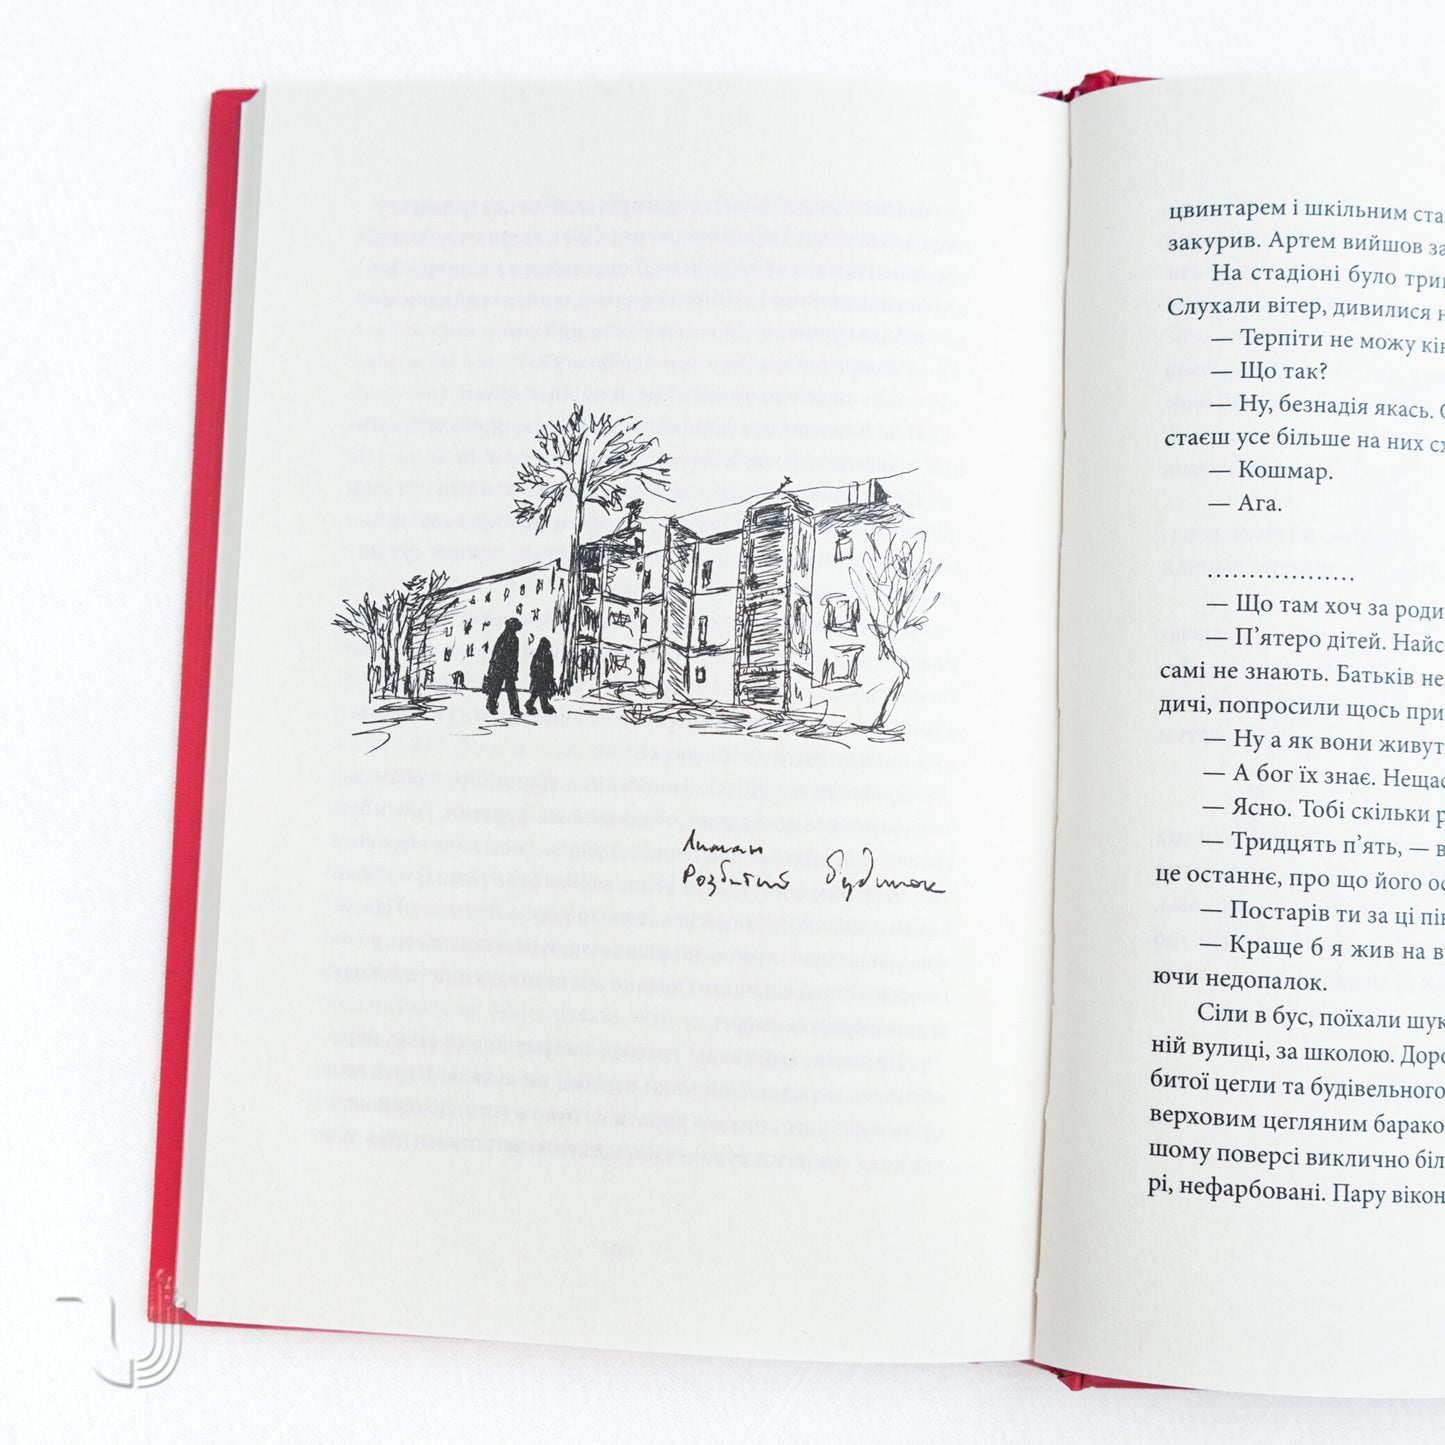 Лиман
Розбитий будинок
цвинтарем і шкільним ста
закурив. Артем вийшов за
На стадіоні було три
Слухали вітер, дивилися н
— Терпіти не можу кін
— Що так?
— Ну, безнадія якась. С
стаєш усе більше на них сх
— Кошмар.
— Ага.
..................
— Що там хоч за роди
— П’ятеро дітей. Найс
самі не знають. Батьків не
дичі, попросили щось при
— Ну а як вони живут
— А бог їх знає. Нещас
— Ясно. Тобі скільки р
— Тридцять п’ять, — в
це останнє, про що його ос
— Постарів ти за ці пі
— Краще б я жив на в
ючи недопалок.
Сіли в бус, поїхали шук
ній вулиці, за школою. Доро
битої цегли та будівельного
верховим цегляним барако
шому поверсі виклично біл
рі, нефарбовані. Пару вікон